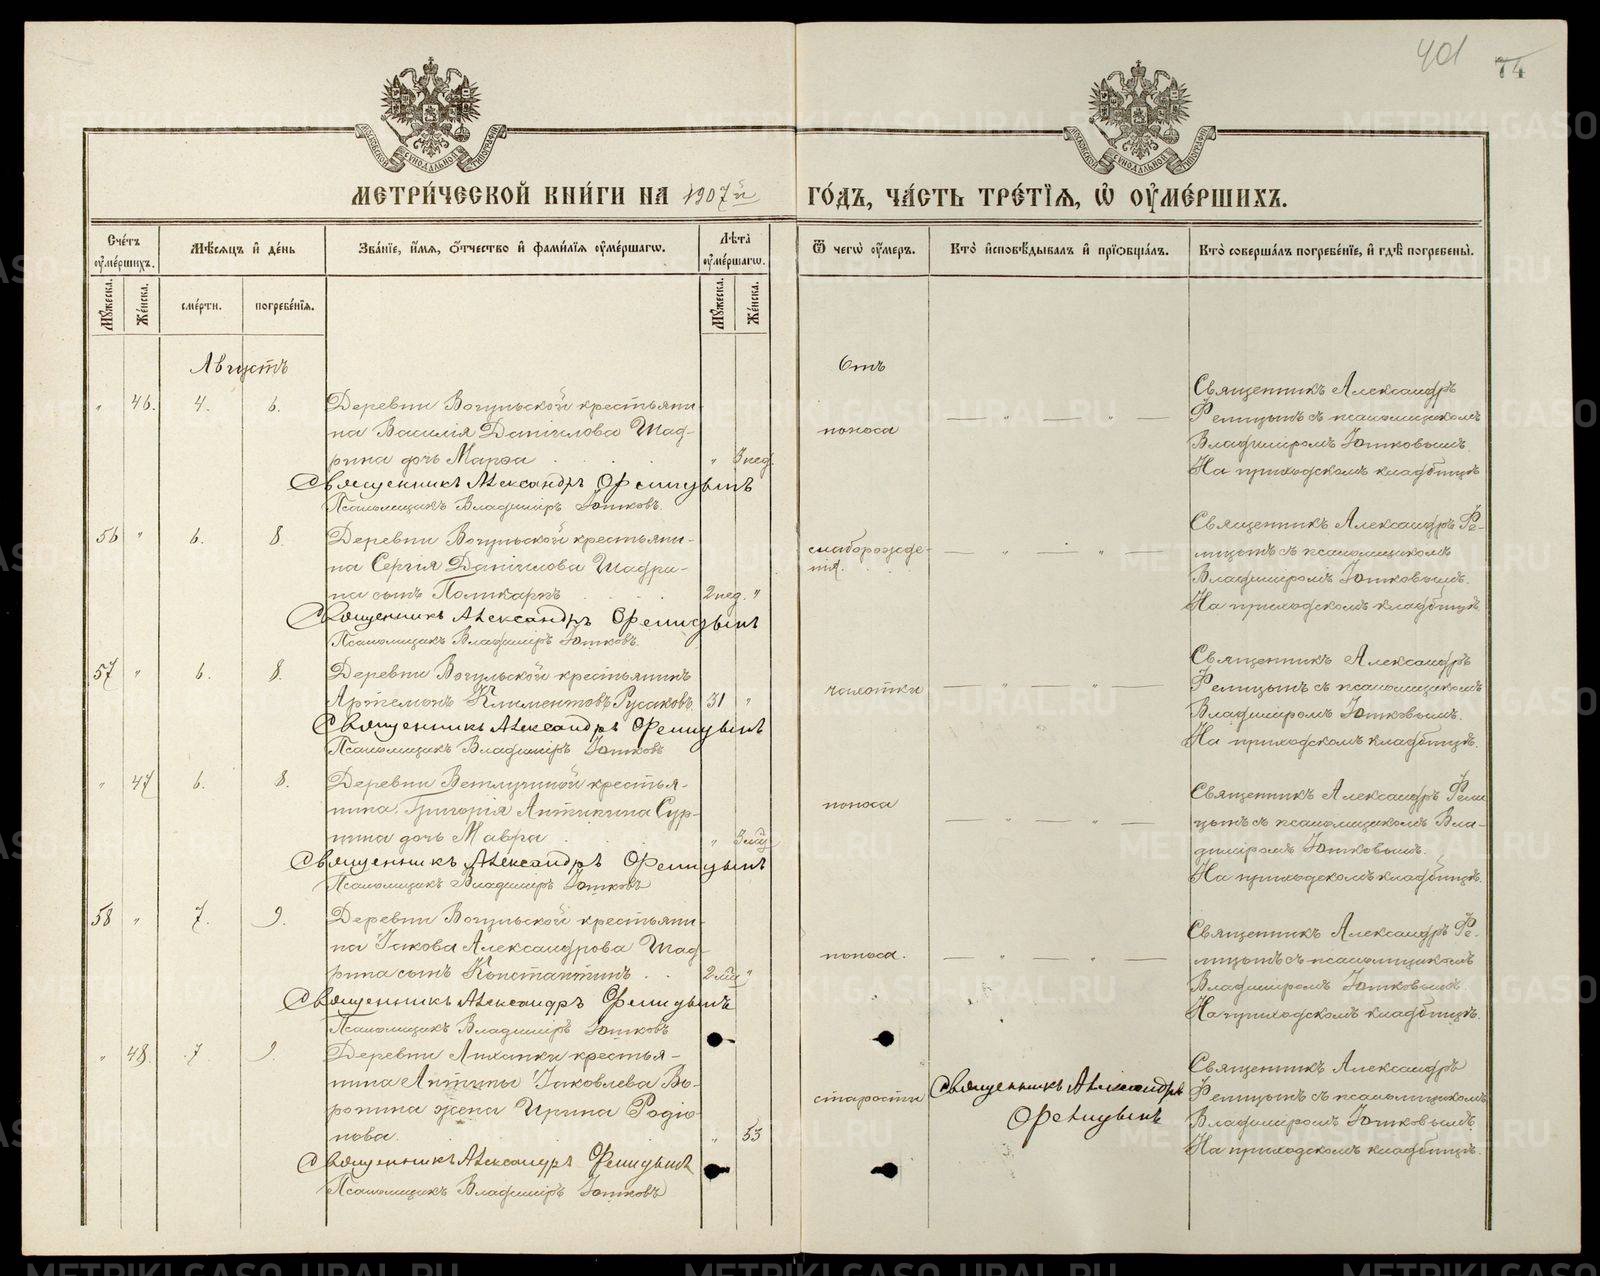 401
74
МЕТРИ́ЧЕСКОЙ КНИ́ГИ НА 1907й ГО́ДЪ, ЧА́СТЬ ТРЕ́ТЇѦ, Ѽ ОУМЕ́РШИХЪ.
Сче́тъ оуме́ршихъ.
Мѣ́сяцъ и҆ де́нь
Зва́нїе, и҆́мѧ, ѻ҆́тчество и҆ фами́лїѧ оуме́ршагѡ.
Лѣ́та оуме́ршагѡ.
Ѿ чегѡ̀ оу́меръ.
Кто̀ и҆сповѣ́дывалъ и҆ прїѡбща́лъ.
Кто̀ соверша́лъ погребе́нїе, и҆ гдѣ̀ погребены̀.
Мꙋ́жеска.
Же́нска.
сме́рти.
погребе́нїѧ.
Мꙋ́жеска.
Же́нска.
Августъ
Отъ
" 46. 4. 6.
Деревни Вогульской крестьяни-
на Василія Данилова Шад-
рина дочь Марѳа " 3 нед.
Священникъ Александръ Ѳелицынъ
Псаломщикъ Владиміръ Зотковъ.
поноса
— " — " —
Священникъ Александръ
Фелицынъ съ псаломщикомъ
Владиміромъ Зотковымъ.
На приходскомъ кладбищѣ
56 " 6. 8.
Деревни Вогульской крестьяни-
на Сергія Данилова Шадри-
на сынъ Поликарпъ 2 нед. "
Священникъ Александръ Ѳелицынъ
Псаломщикъ Владиміръ Зотковъ.
слаборожде-
нія.
— " — " —
Священникъ Александръ Фе-
лицынъ съ псаломщикомъ
Владиміромъ Зотковымъ.
На приходскомъ кладбищѣ.
57 " 6. 8.
Деревни Вогульской крестьянинъ
Артемонъ Климентовъ Русаковъ. 31 "
Священникъ Александръ Ѳелицынъ
Псаломщикъ Владиміръ Зотковъ
чахотки
— " — " —
Священникъ Александръ
Фелицынъ съ псаломщикомъ
Владиміромъ Зотковымъ.
На приходскомъ кладбищѣ.
" 47 6. 8.
крестья-
нина Григорія Антипина Сур-
нина дочь Мавра " 3 мц
Священникъ Александръ Ѳелицынъ
Псаломщикъ Владиміръ Зотковъ
поноса
— " — " —
Священникъ Александръ Фели
цынъ съ псаломщикомъ Вла-
диміромъ Зотковымъ.
На приходскомъ кладбищѣ.
58 " 7. 9.
Деревни Вогульской крестьяни-
на Іакова Александрова Шад-
рина сынъ Константинъ 2 мц "
Священникъ Александръ Ѳелицынъ
Псаломщикъ Владиміръ Зотковъ
поноса.
— " — " —
Священникъ Александръ Фе-
лицынъ съ псаломщикомъ
Владиміромъ Зотковымъ.
На приходскомъ кладбищѣ.
" 48. 7 9.
Деревни Лиханки крестья-
нина Антипы Іаковлева Во-
ронина жена Ирина Родіо-
нова. " 53
Священникъ Александръ Ѳелицынъ
Псаломщикъ Владиміръ Зотковъ
старости
Священникъ Александръ
Ѳелицынъ
Священникъ Александръ
Фелицынъ съ псаломщикомъ
Владиміромъ Зотковымъ
На приходскомъ кладбищѣ.